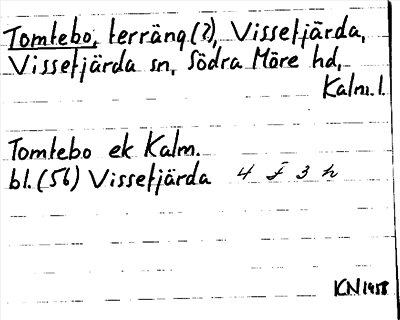 Tomtebo, terräng(?), Vissefjärda,
Vissefjärda sn, Södra Möre hd,
Kalm. l.
Tomtebo ek Kalm.
bl. (56) Vissefjärda 4 F 3 h
KN 1958